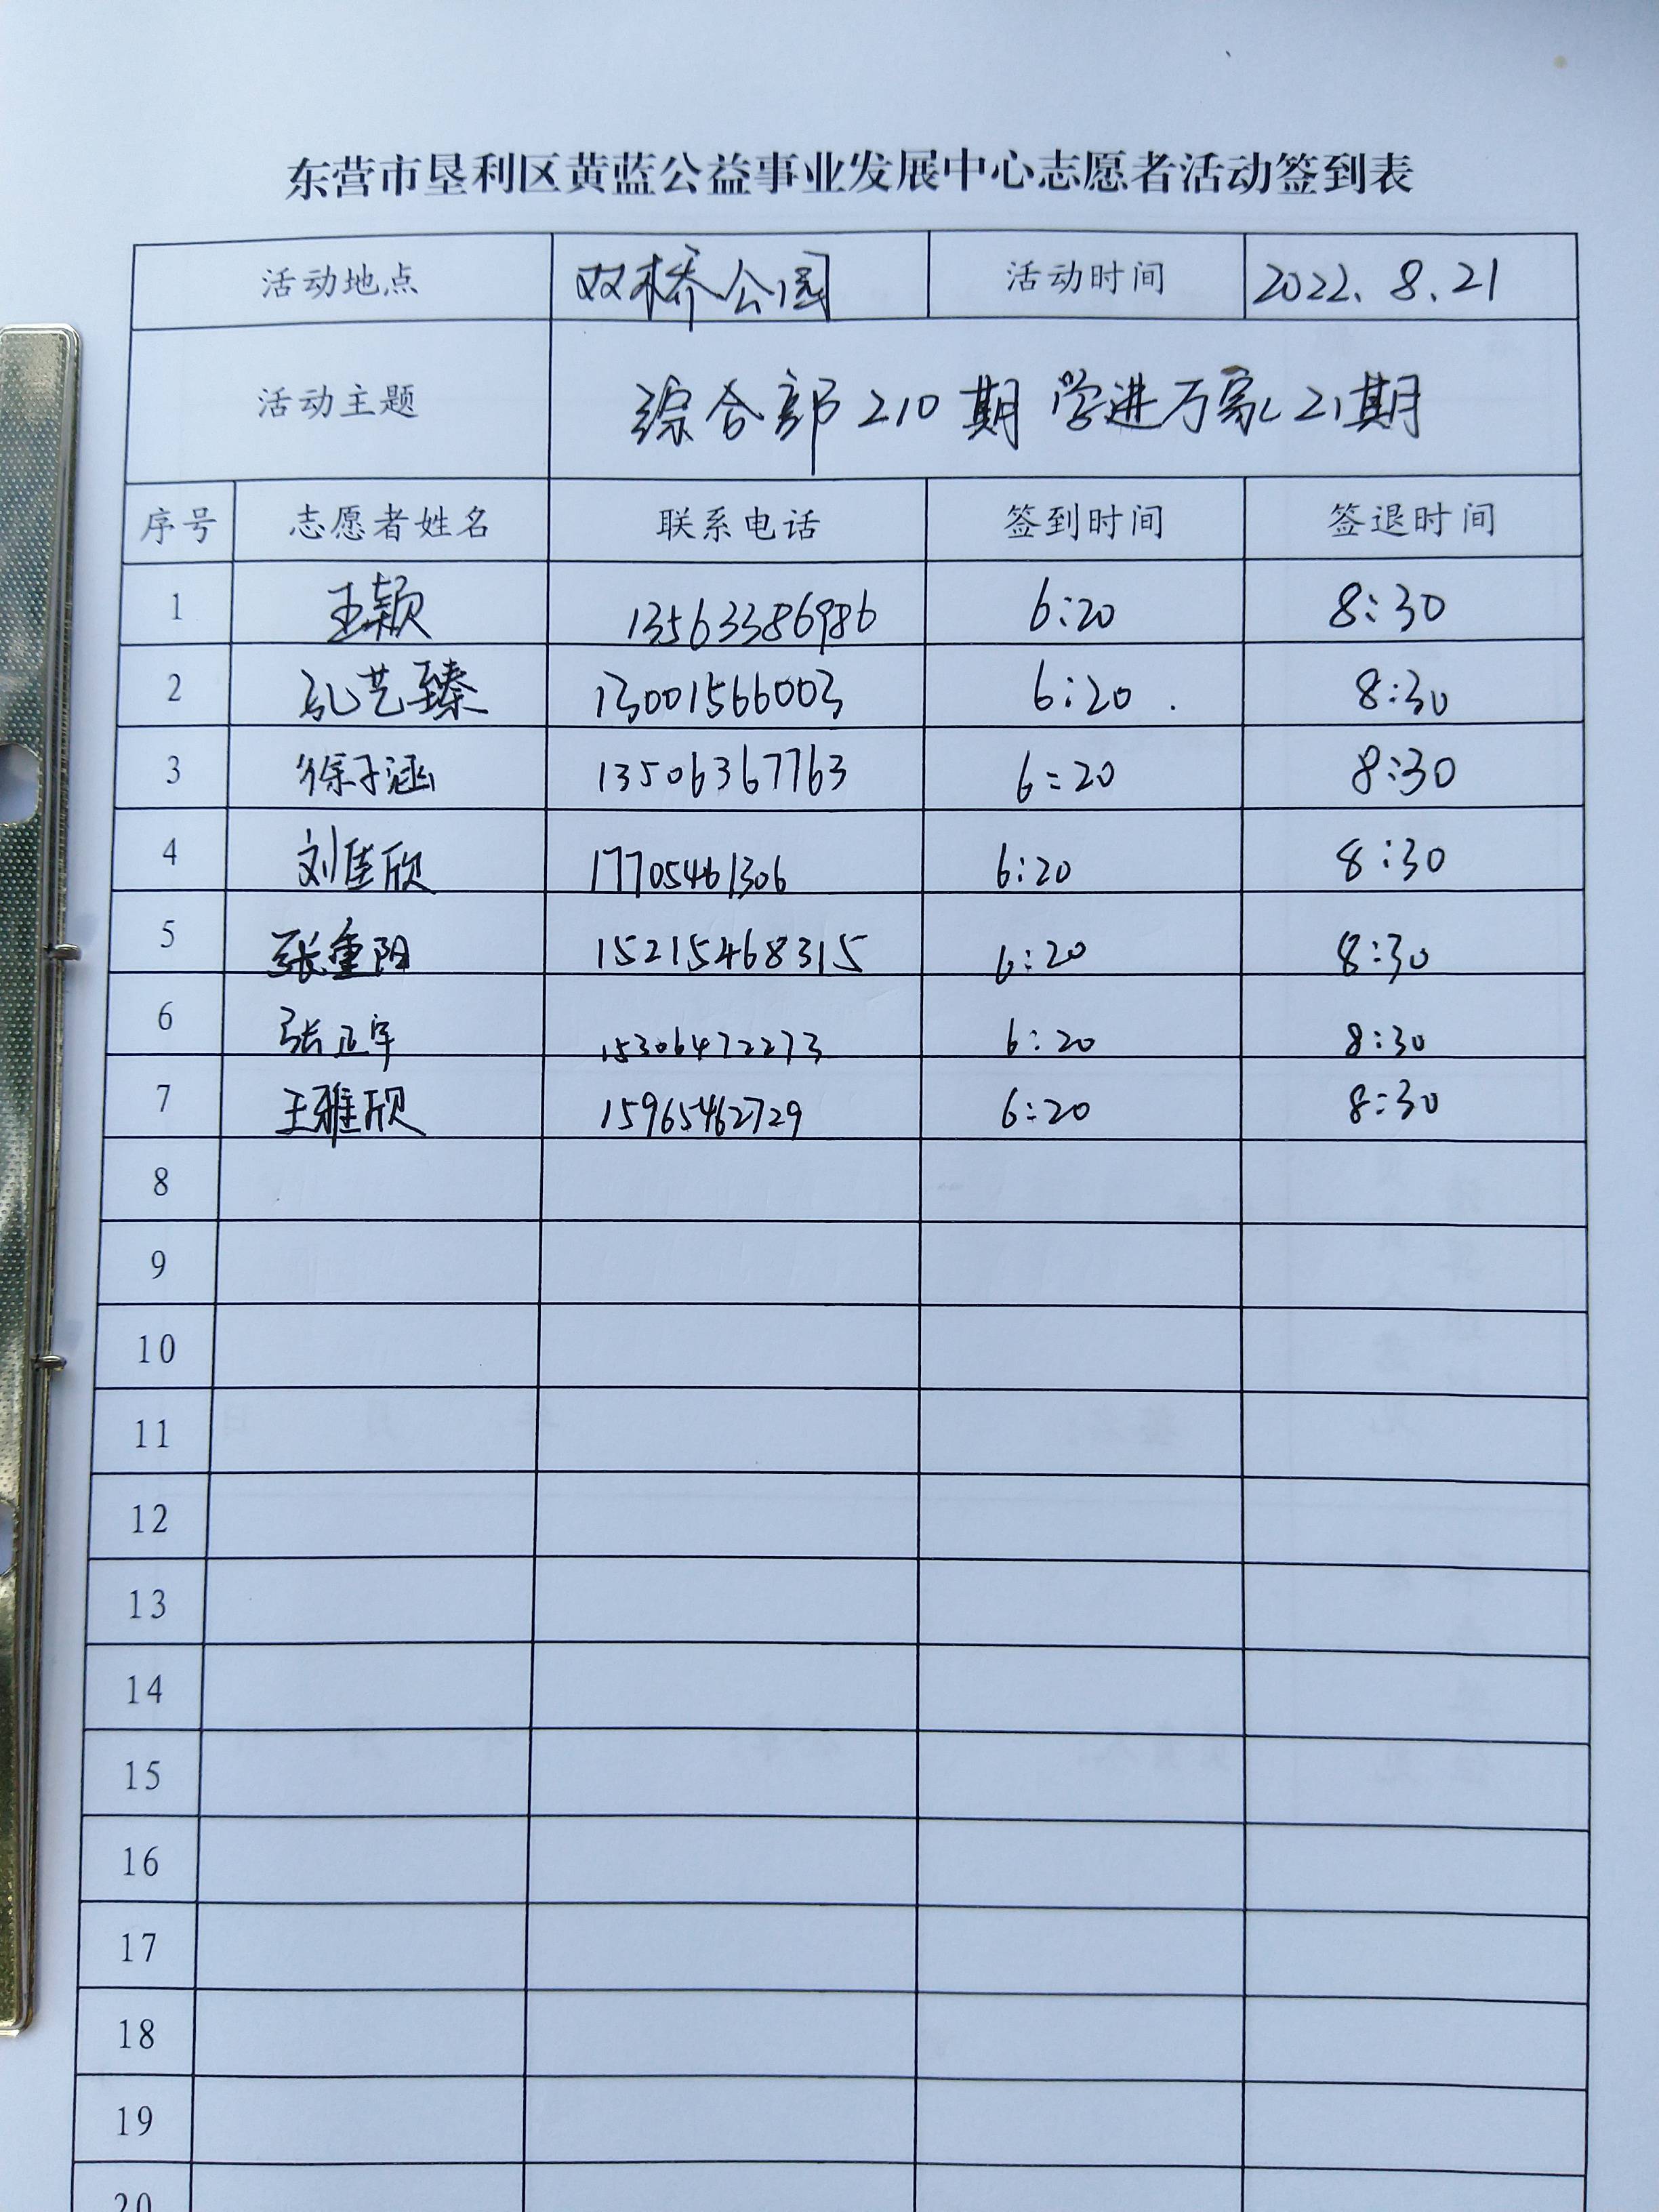 东营市垦利区黄蓝公益事业发展中心志愿者活动签到表
活动地点 双桥公园 活动时间 2022.8.21
活动主题 综合部210期 学进万家21期
序号 志愿者姓名 联系电话 签到时间 签退时间
1 王颖 13563386986 6:20 8:30
2 孔艺臻 13001566003 6:20 8:30
3 徐子涵 13506367763 6:20 8:30
4 刘佳欣 17705461306 6:20 8:30
5 张重阳 15215468315 6:20 8:30
6 张正宇 15306472273 6:20 8:30
7 王雅欣 15965462729 6:20 8:30
8
9
10
11
12
13
14
15
16
17
18
19
20